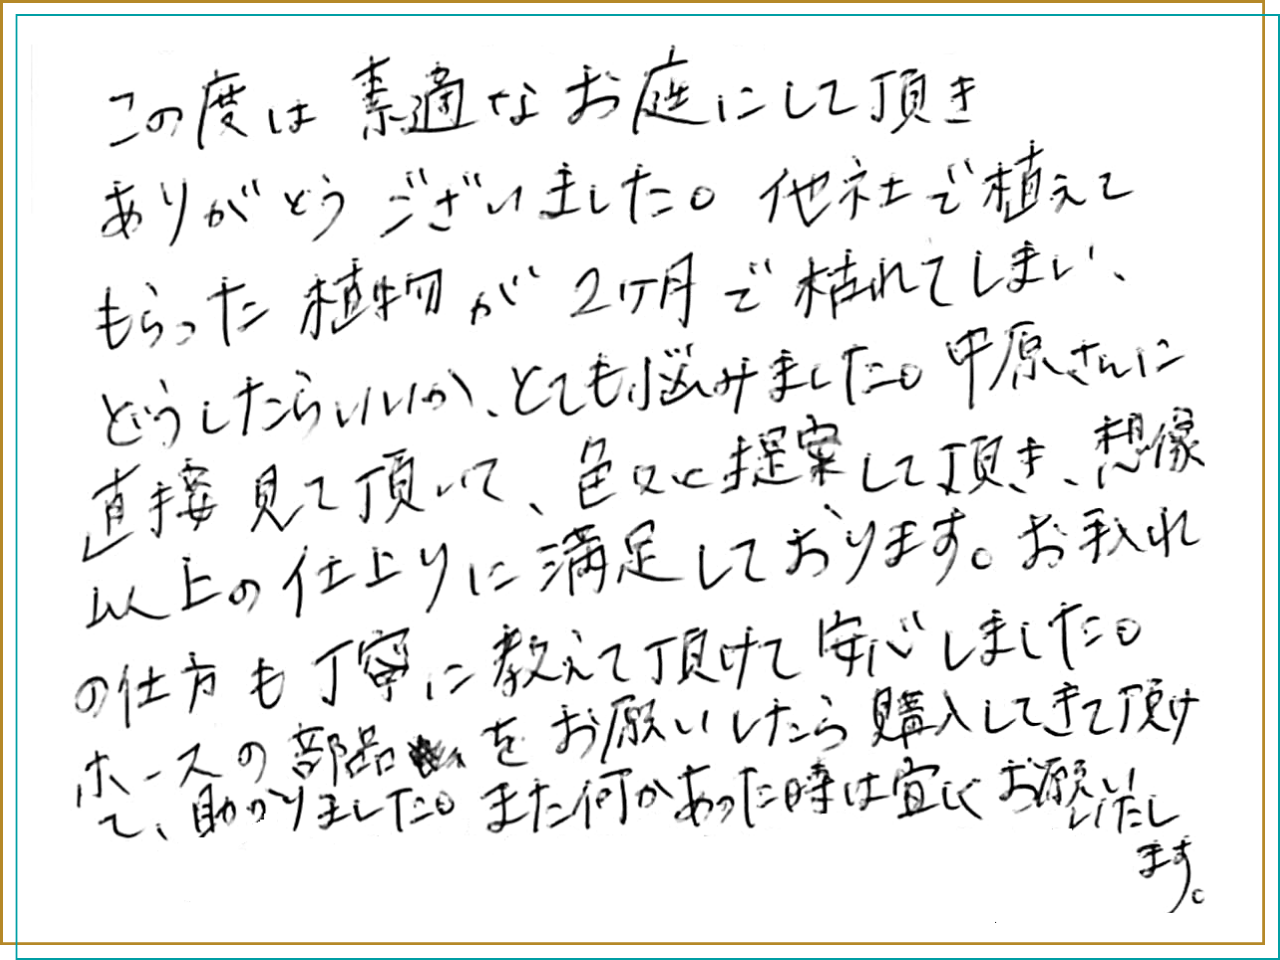 この度は素適なお庭にして頂き
ありがとうございました。他社で植えて
もらった植物が2ヶ月で枯れてしまい、
どうしたらいいか、とても悩みました。中原さんに
直接見て頂いて、色々と提案して頂き、想像
以上の仕上りに満足しております。お手入れ
の仕方も丁寧に教えて頂けて安心しました。
ホースの部品をお願いしたら購入してきて頂け
て、助かりました。また何かあった時は宜しくお願いいたし
ます。